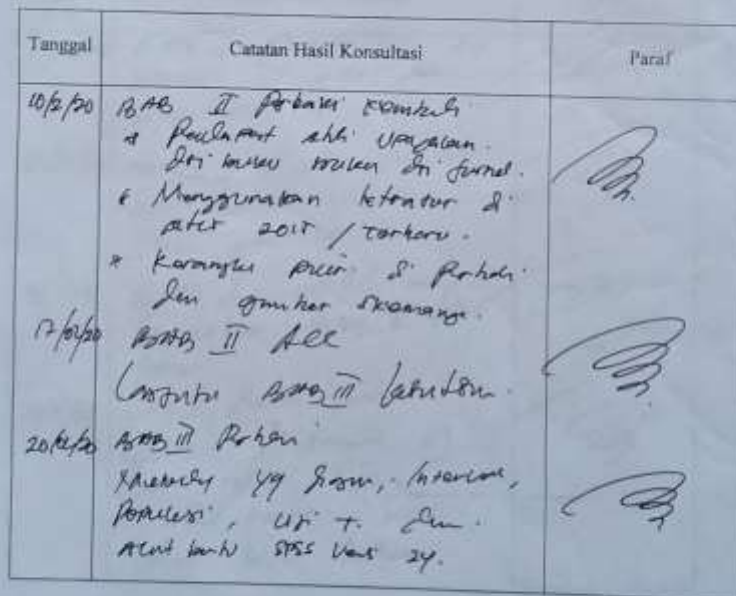 Tanggal Catatan Hasil Konsultasi Paraf
10/2/20 BAB II Perbaiki kembali
* Pendapat ahli upayakan
dri buku bukan dri jurnal.
* Menggunakan literatur di
atas 2015 / terbaru.
* Kerangka pikir di Perbaiki
dan gambar skemanya.
17/02/20 BAB II Acc
Lanjutu BAB III
20/02/20 BAB III
yg
Populasi, Uji t. dan
Alat bantu SPSS Versi 24.